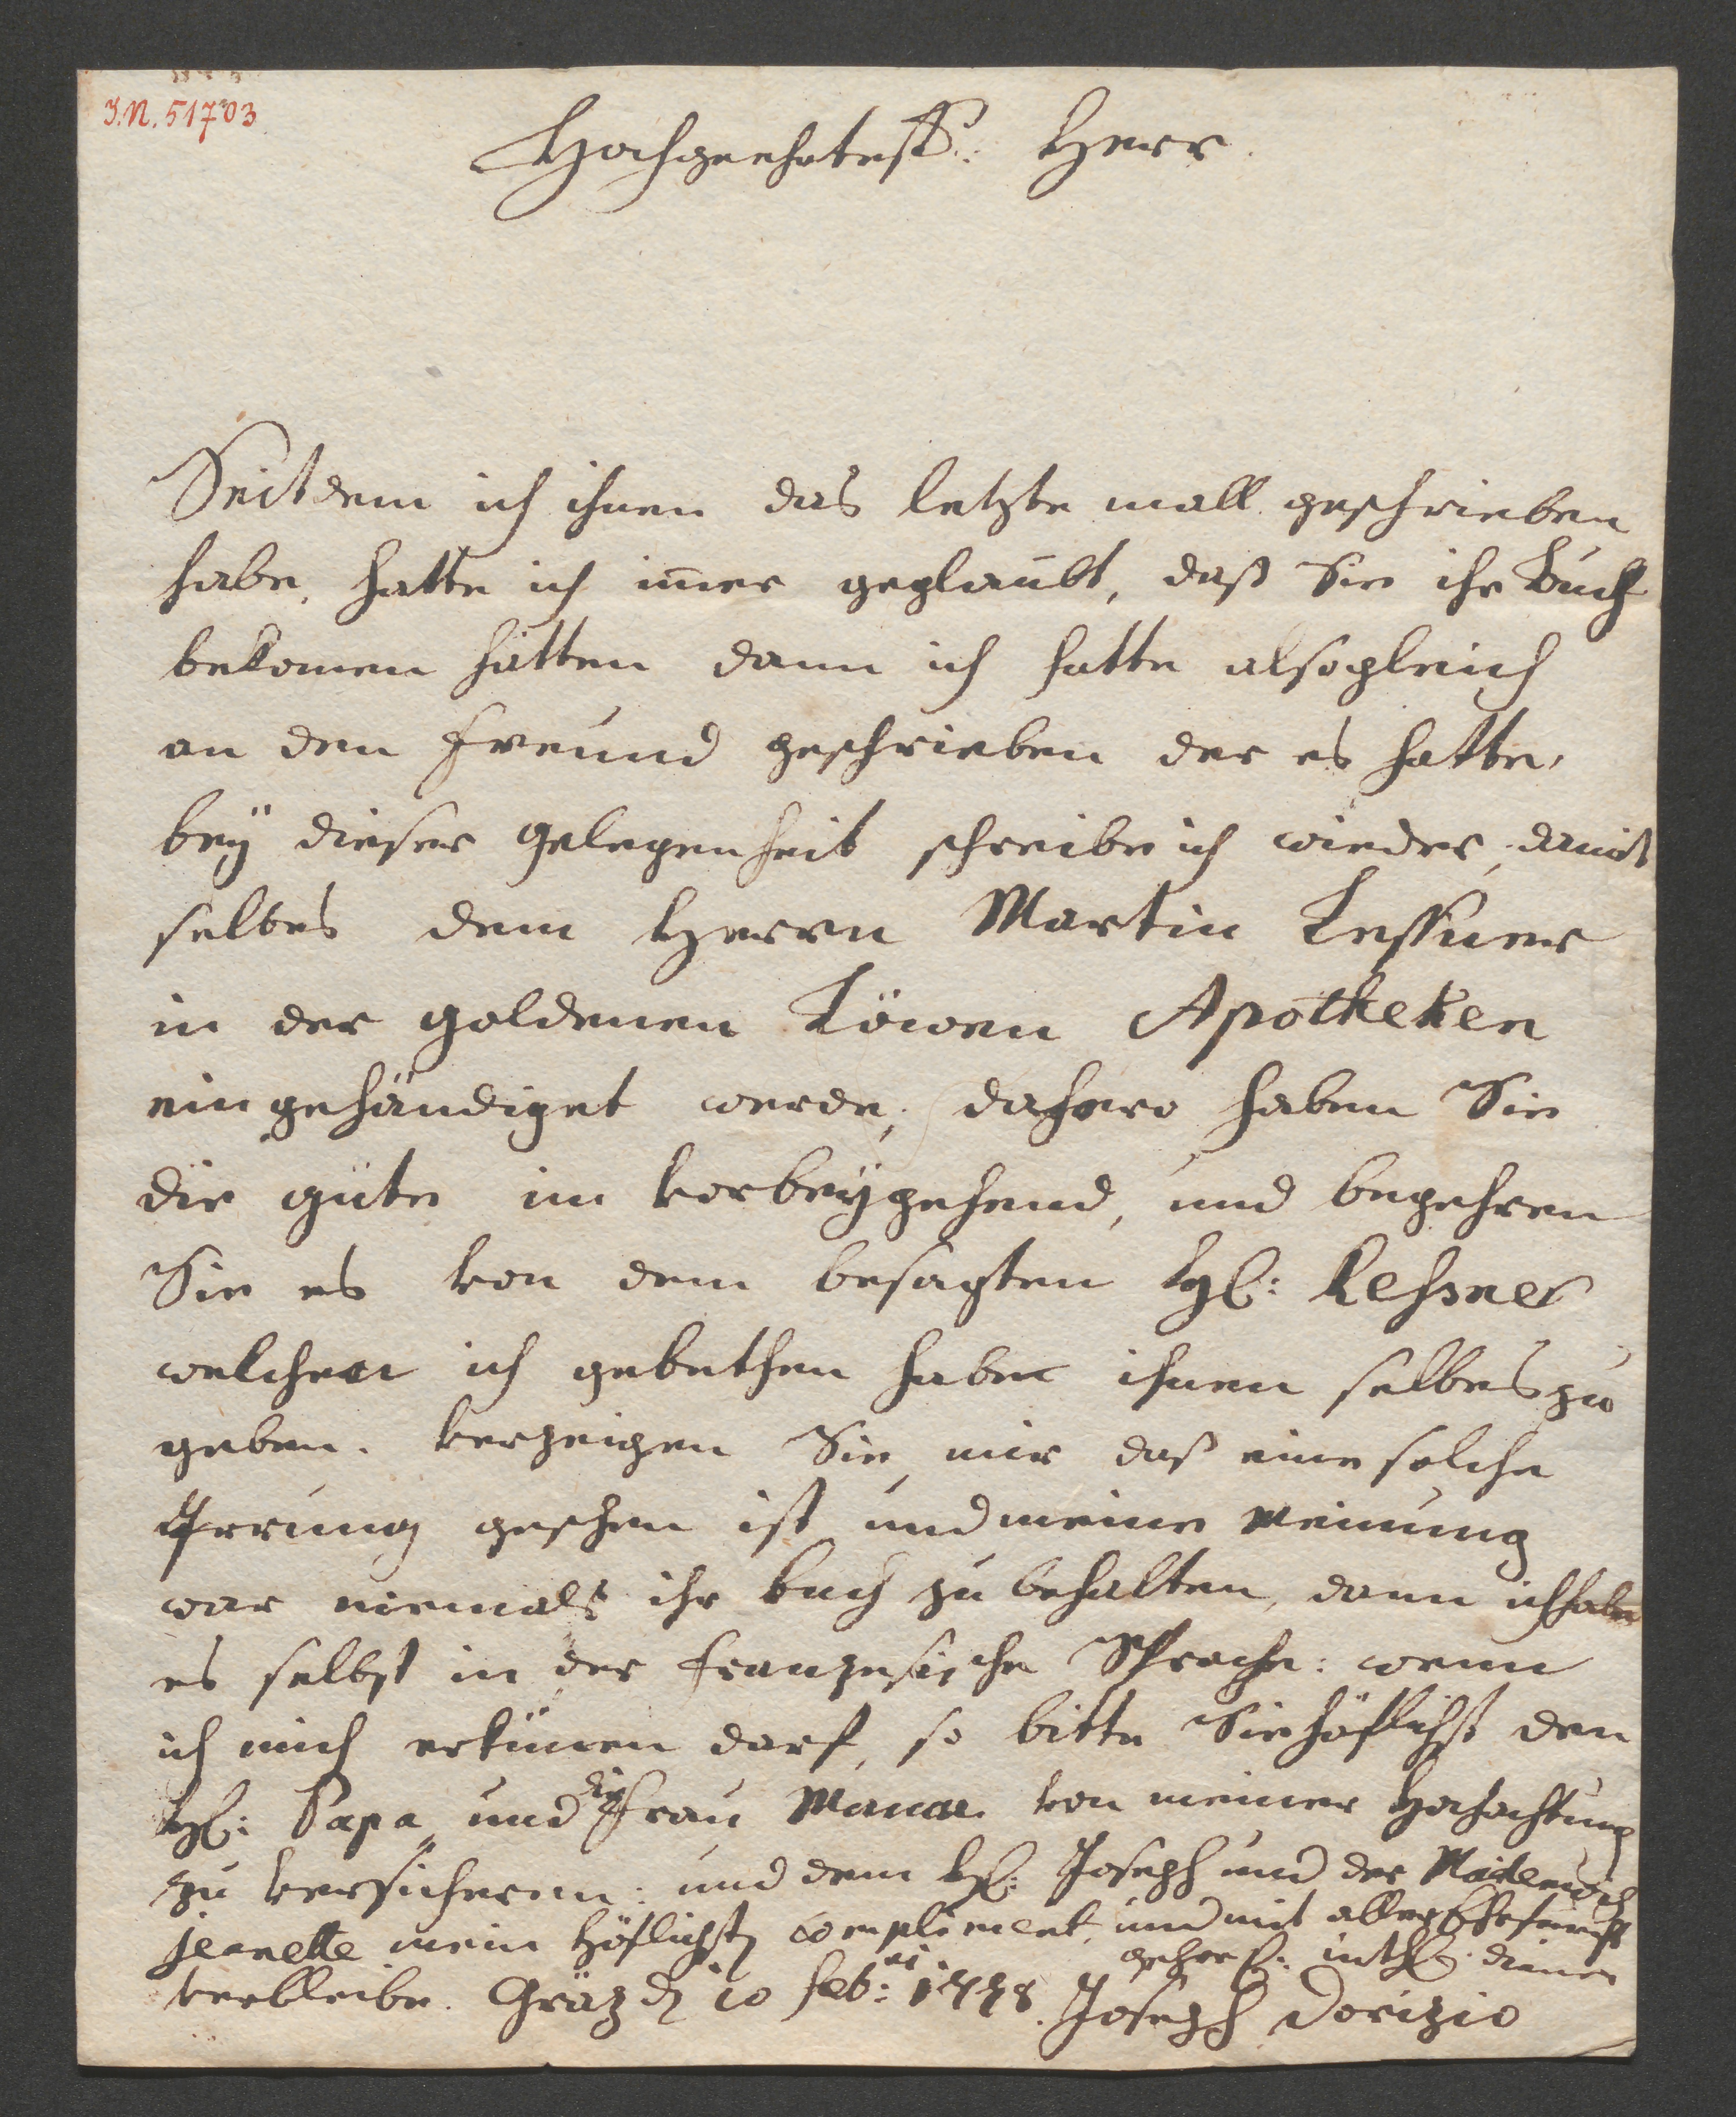 I.N. 51703
Hochgeehrtest: Herr
Seitdem ich ihnen das letzte mall geschrieben
habe, hatte ich im̄er geglaubt, daß Sie ihr Buch
bekomen hätten dann ich hatte alsogleich
an den freund geschrieben der es hatte,
bey dieser gelegenheit schreibe ich wieder, damit
selbes dem Herrn Martin
in der goldenen Löwen Apotheken
eingehändiget werde, dahero haben Sie
die güte im vorbeygehend, und begehren
Sie es von dem besagten H:
welchen ich gebethen habe ihnen selbes zu
geben. verzeigen Sie mir daß eine solche
Irrung geschen ist und meine Meinung
war niemals ihr buch zu behalten, dann ich habe
es selbst in der franzesische Sprache: wenn
ich mich erkünen darf, so bitte Sie höflichst den
H: Papa und die frau Maman von meiner Hochachtung
zu versicheren: und dem H: Joseph und der
jeanette mein höflichst compliment, und mit aller Ehrfurcht
verbleibe. Gräz den 10 feb:ri 1778. gehors: diener
Joseph Dorizio